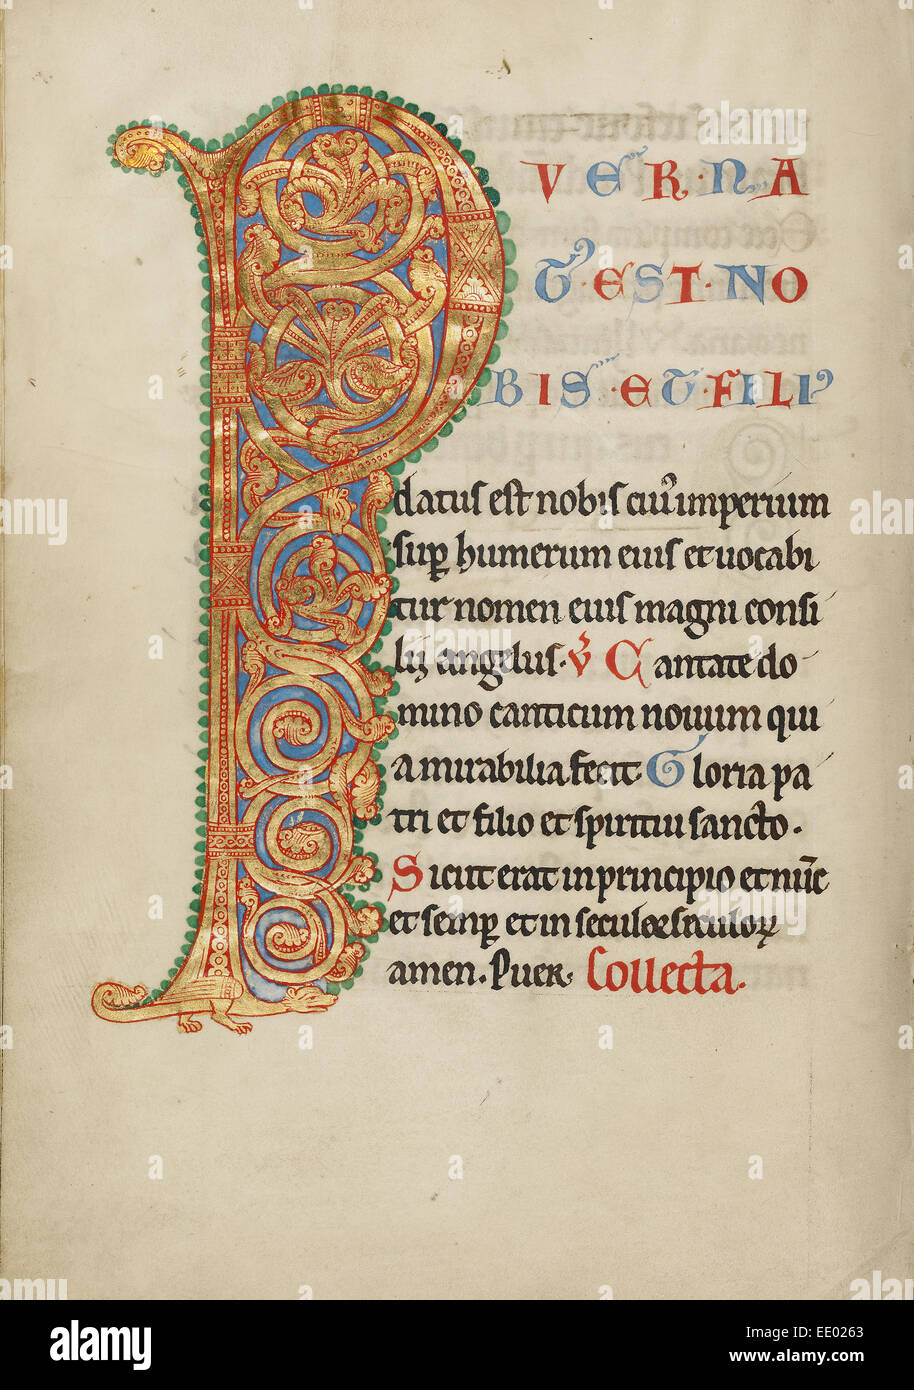 P VER·NA
T·EST·NO
BIS·ET·FILI⁹
datus est nobis cui⁹ imperium
sup̱ humerum eius et uocabi
tur nomen eius magni consi
lij angelus· v̉ Cantate do
mino canticum nouum qui
a mirabilia fecit· Gloria pa
tri et filio et spiritui sancto·
Sicut erat in principio et nūc
et semp̱ et in secula seculoꝝ
amen. Puer· Collecta·
alamy
Image ID: EE0263
www.alamy.com